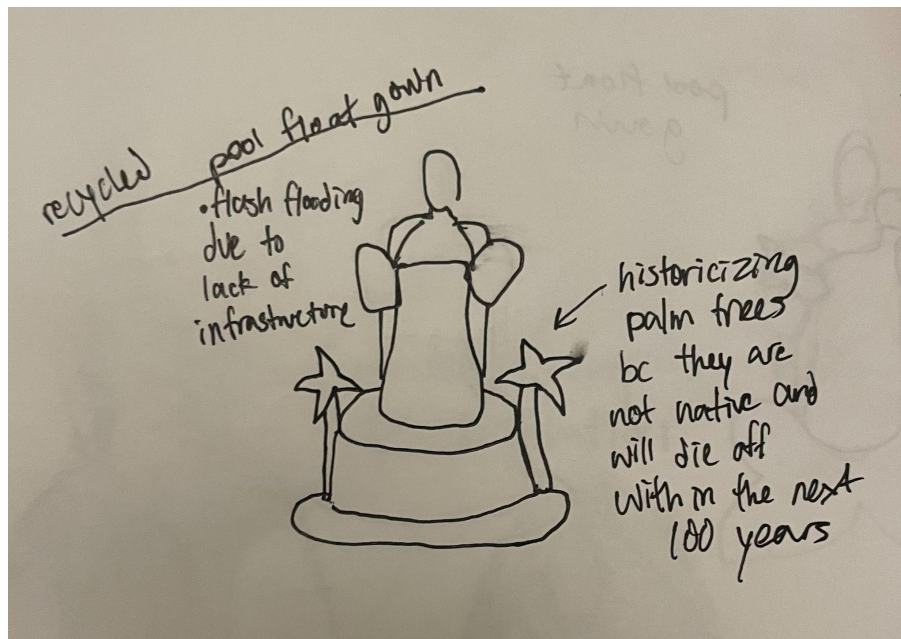 recycled pool float gown
• flash flooding
due to
lack of
infrastructure
historicizing
palm trees
bc they are
not native and
will die off
within the next
100 years
pool float
gown